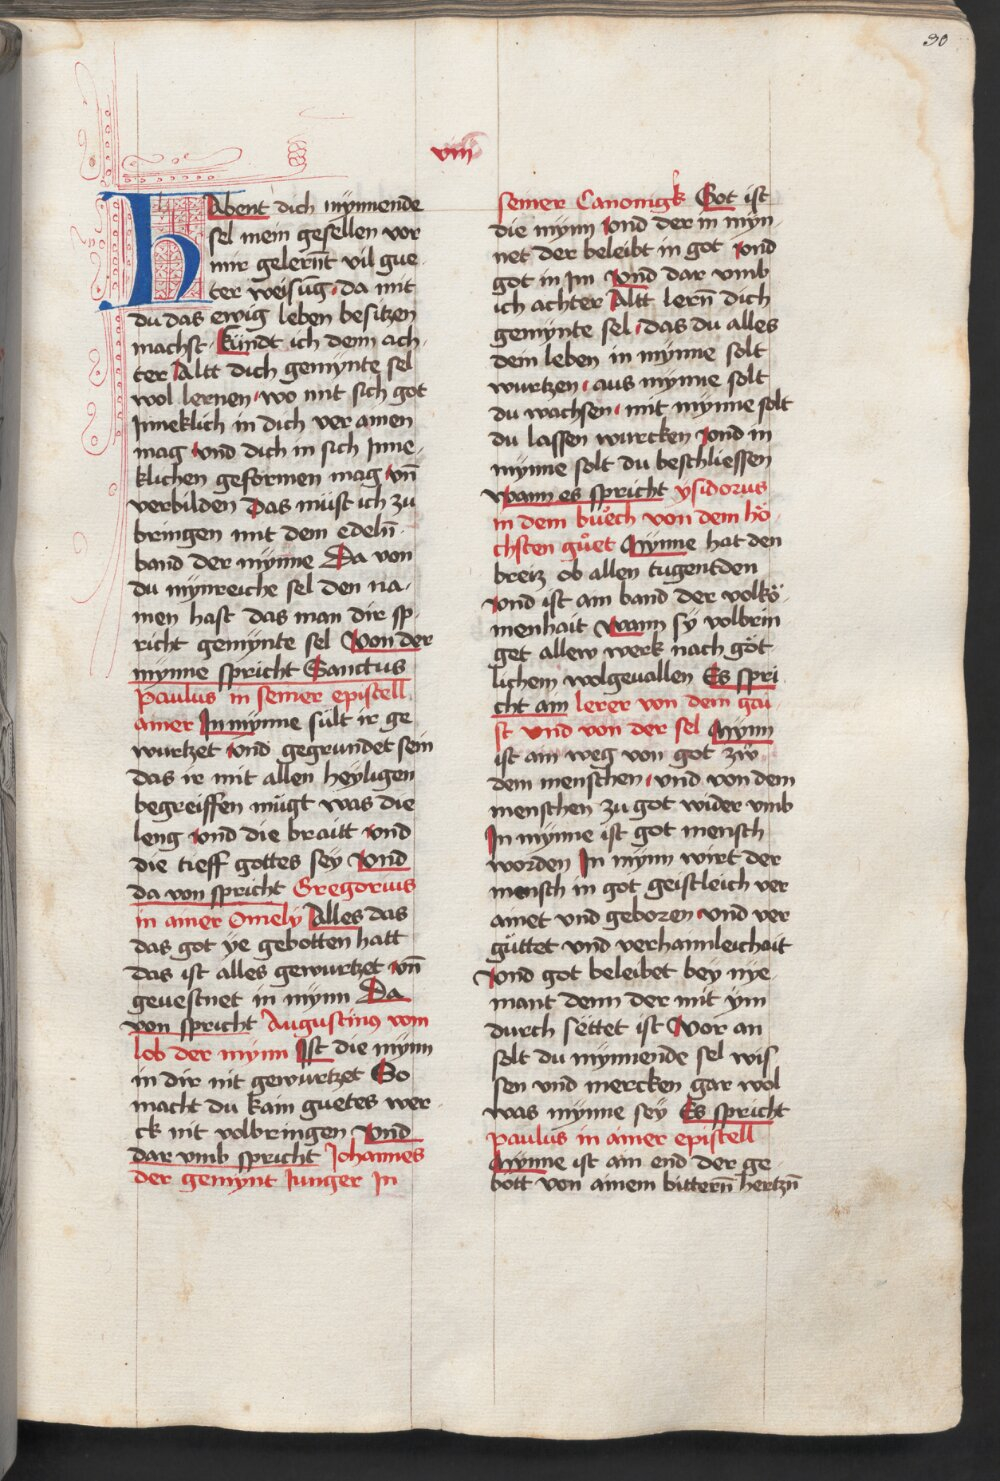 30
viii
HAbent dich mynnende
sel mein gesellen vor
mir gelernt vil gue
ter weisūg da mit
du das ewig leben besitzen
machst Kündt ich denn ach
ter Altt dich gemynte sel
wol lernen wo mit sich got
Inneklich in dich ver amen
mag vnd dich in sich Inne
klichen geformen mag vn̄
verbilden Das müst ich zu
bringen mit dem edelñ
band der mynne Da von
du mynreiche sel den na
men hast das man dir sp
richt gemynte sel Von der
mynne spricht Sanctus
Paulus in seiner epistell
ainer In mynne sült ir ge
wurtzet vnd gegrundet sein
das ir mit allen heyligen
begreiffen mügt was die
leng vnd die braitt vnd
die tieff gottes sey Vnd
da von spricht Gregorius
in ainer Omely Alles das
das got ye gebotten hatt
das ist alles gewurtzet vn̄
geuestnet in mynn Da
von spricht Augustinus vom
lob der mynn Ist die mynn
in dir nit gewurtzet So
macht du kain guetes wer
ck nit volbringen Vnd
dar vmb spricht Johannes
der gemynt Iunger In
seiner Canonigk Got ist
die mynn vnd der in myn
net der beleibt in got vnd
got in Im Vnd dar vmb
ich achter Altt lern̄ dich
gemynte sel das du alles
dem leben in mynne solt
wurtzen aus mynne solt
du wachsen mit mynne solt
du lassen wurcken vnd in
mynne solt du beschliessen
Wann es spricht ysidorus
in dem bůech von dem hö
chsten gůet Mynne hat den
breiz ob allen tugentden
Vnd ist ain band der volkö
menhait Wann sy volbrin
get allew werk nach göt
lichem wolgeuallen Es spri
cht ain lerer von dem gai
st vnd von der sel Mynn
ist ain weg von got zw
dem menschen vnd von dem
menschen zu got wider vmb
In mynne ist got mensch
worden In mynn wirt der
mensch in got geistleich ver
ainet vnd geboren vnd ver
güttet vnd verhaimleichait
Vnd got beleibet bey nye
mant denn der mit ym
durch settet ist Vor an
solt du mynnende sel wis
sen vnd mercken gar wol
was mynne sey Es spricht
paulus in ainer epistell
Mynne ist ain end der ge
bott von ainem bittern̄ hertzn̄